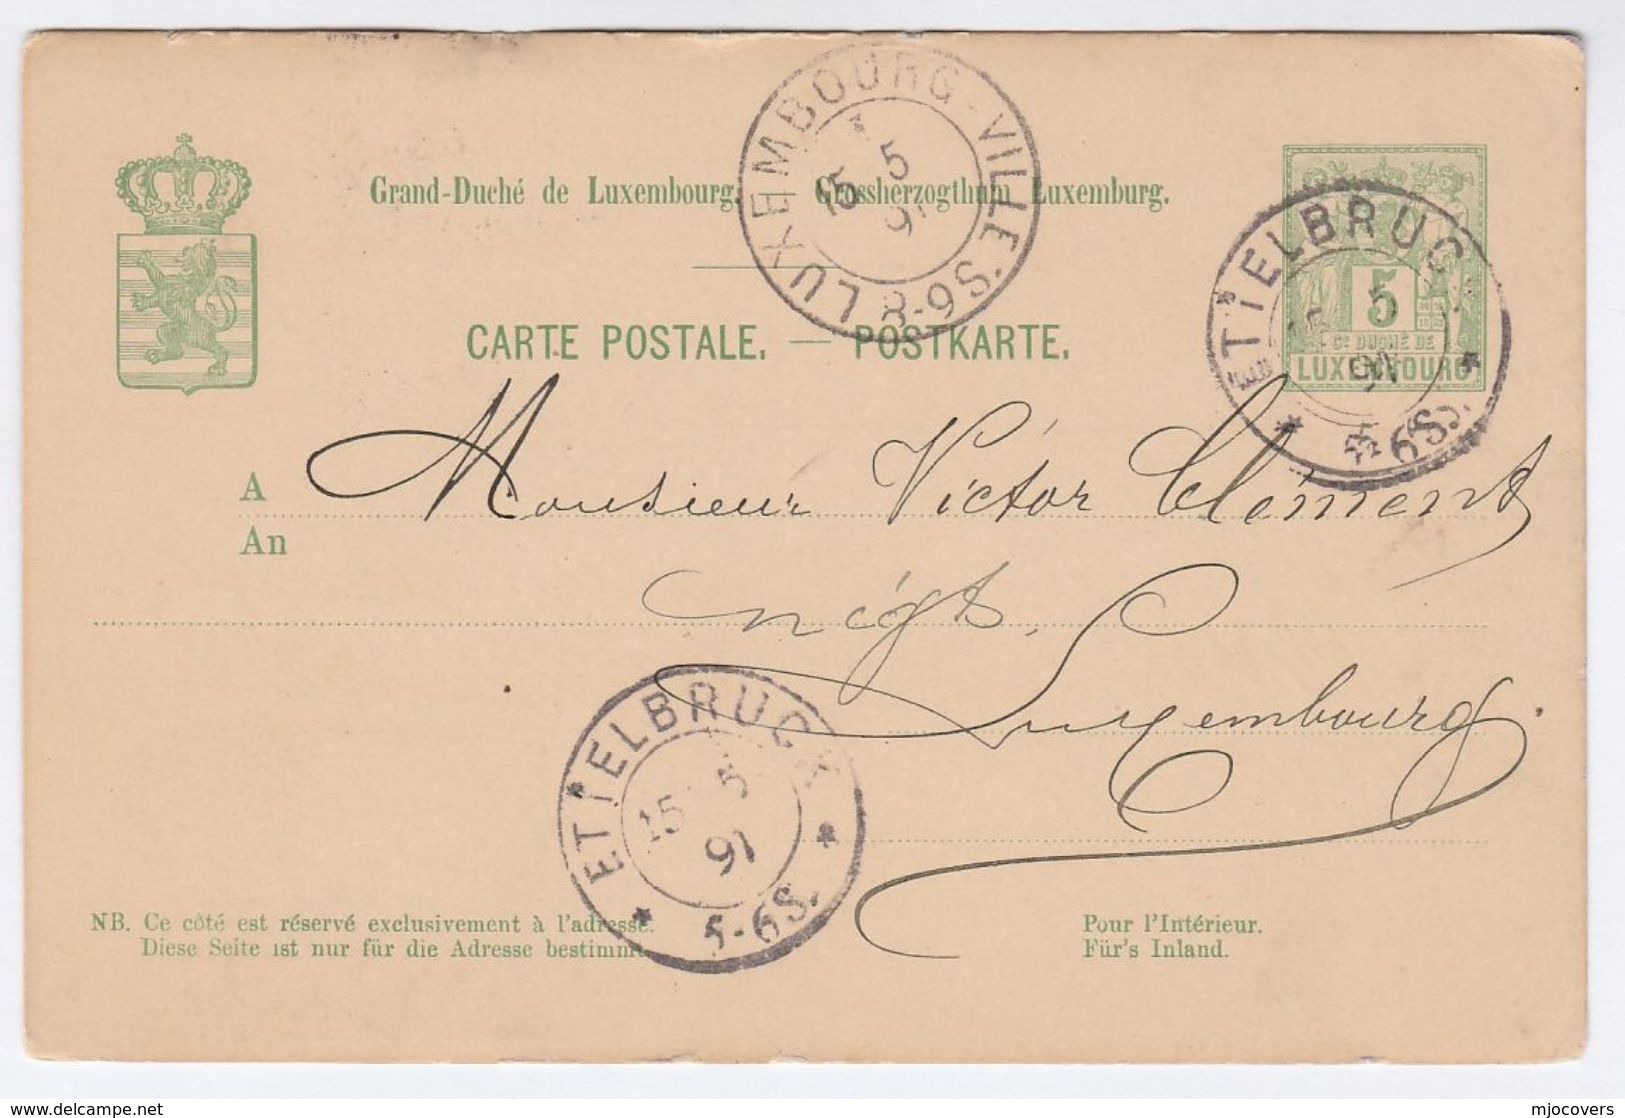 LUXEMBOURG-VILLE
15 5
91
8-9S.
Grand-Duché de Luxembourg. — Grossherzogthum Luxemburg.
CARTE POSTALE. — POSTKARTE.
5
Gd DUCHÉ DE
LUXEMBOURG
ETTELBRUCK
15 5
91
6S.
A Monsieur Victor Clément
An
négt.
Luxembourg.
ETTELBRUCK
15 5
91
5-6S.
NB. Ce côté est réservé exclusivement à l'adresse.
Diese Seite ist nur für die Adresse bestimmt.
Pour l'Intérieur.
Für's Inland.
mjocovers